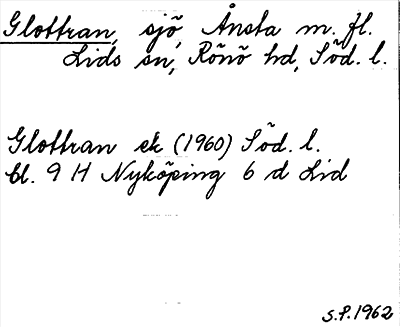 Glottran, sjö, Ånsta m. fl.
Lids sn, Rönö hd, Söd. l.
Glottran ek (1960) Söd. l.
bl. 9 H Nyköping 6 d Lid
S.P. 1962